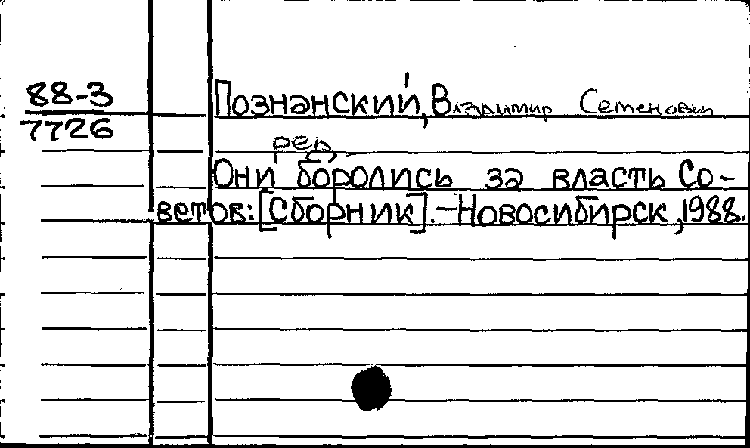 88-3
7726
Познанский, Владимир Семенович
ред.
Они боролись за власть Со-
ветов: [Сборник]. - Новосибирск, 1988.